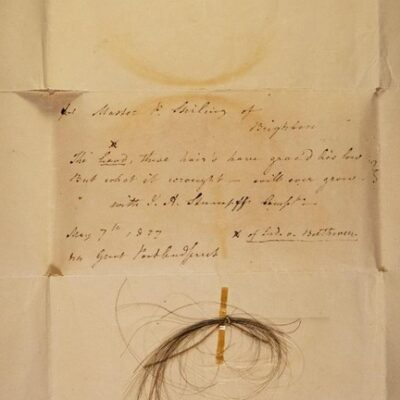 for Master of
Brighton
x
The head, these hair's have grac'd lies low
But what it wrought — will ever grow.
with J. A. Stumpff's Compts.
May 7th 1827 x of Lud. v. Beethoven.
Great Portland Street